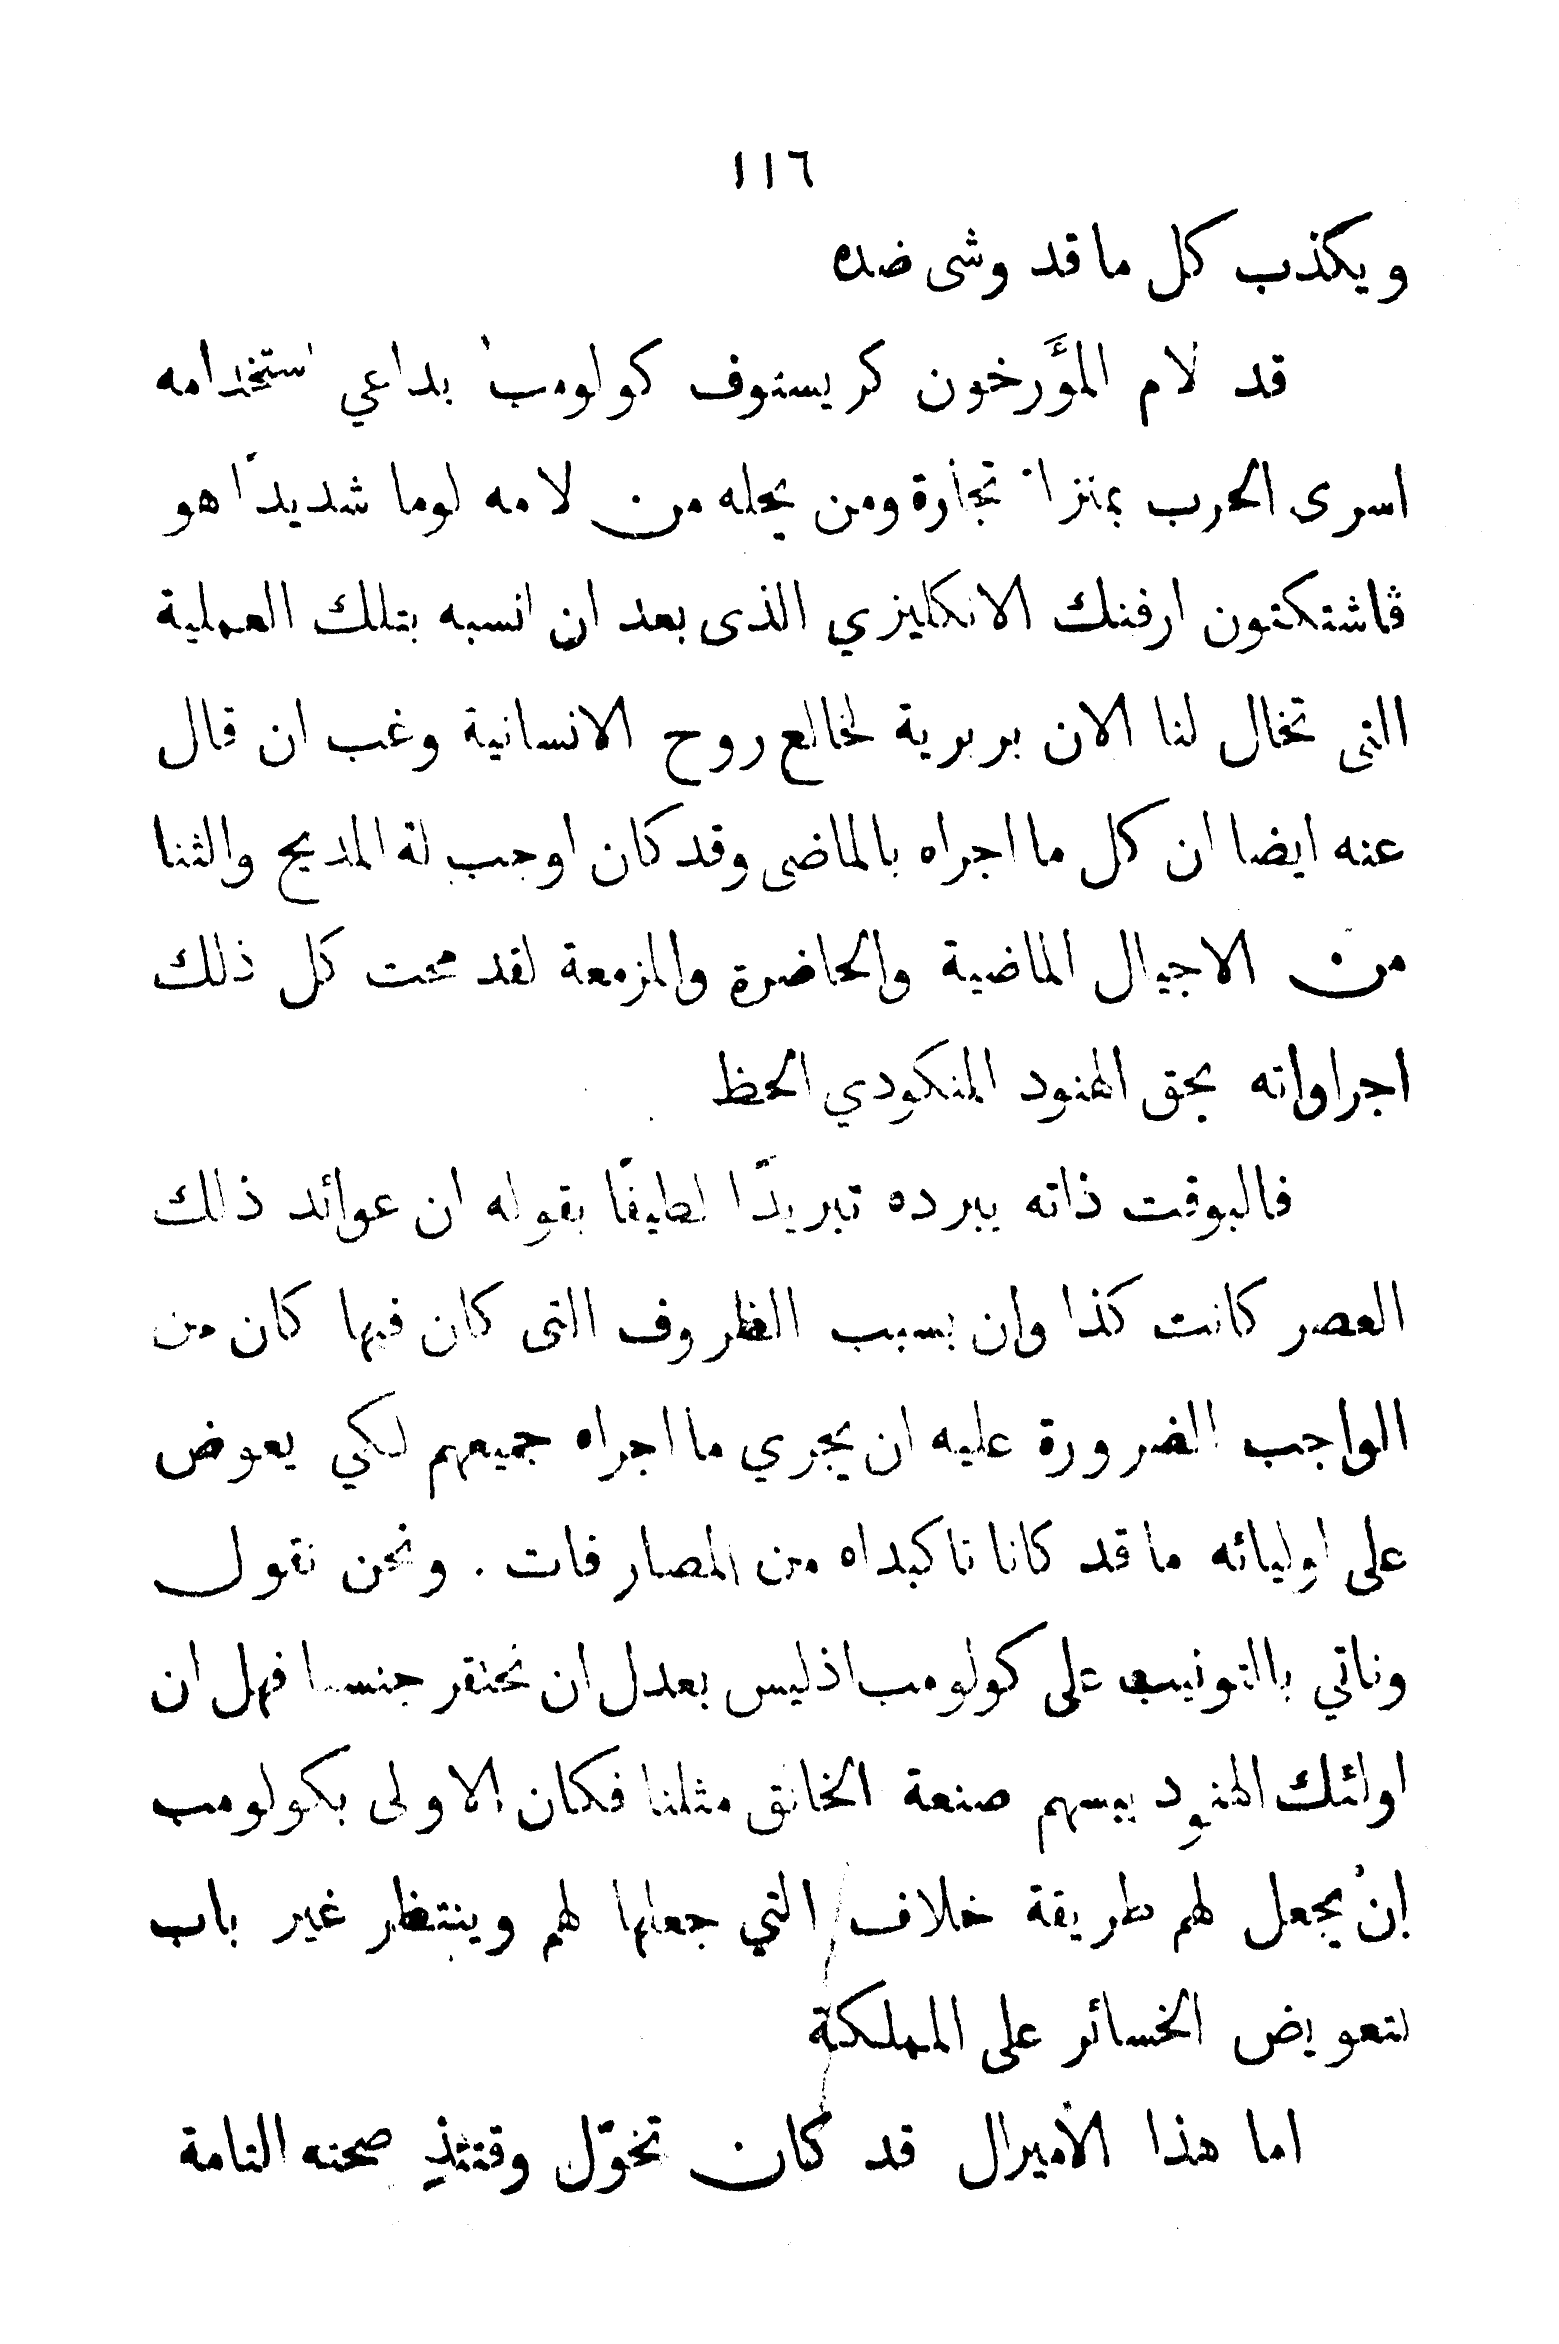 ١١٦
ويكذب كل ما قد وشى ضده
قد لام المؤَرخون كريستوف كولومب بداعي استخدامه
اسرى الحرب بمنزلة تجارة ومن يحله من لامه لوما شديدًا هو
ڤاشنكتون ارفنك الانكليزي الذى بعد ان انسبه بتلك العملية
التى تخال لنا الان بربرية لخالع روح الانسانية وغب ان قال
عنه ايضا ان كل ما اجراه بالماضى وقد كان اوجب لة المديح والثنا
من الاجيال الماضية والحاضرة والمزمعة لقد محت كل ذلك
اجراواته بحق الهنود المنكودي الحظ
فالبوقت ذاته يبرده تبريدًا لطيفًا بقوله ان عوائد ذلك
العصر كانت كذا وإن بسبب الظروف التى كان فيها كان من
الواجب الضرورة عليه ان يجري ما اجراه جميعهم لكي يعوض
على اوليائه ما قد كانا تاكبداه من المصارفات . ونحن نقول
وناتي بالتونيب على كولومب اذ ليس بعدل ان نحتقر جنسا فهل ان
اولئك الهنود ييسهم صنعة الخالق مثلنا فكان الاولى بكولومب
إن يجعل لهم طريقة خلاف التي جعلها لهم وينتظر غير باب
لتعويض الخسائر على المملكة
اما هذا الأميرال قد كان تخوّل وقتئذٍ صحته التامة